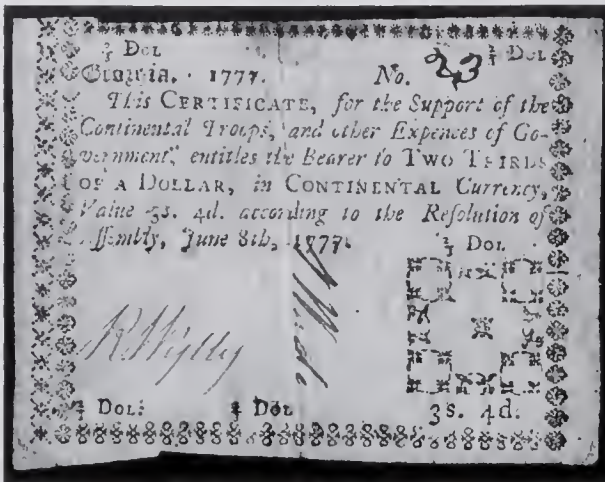 ⅔ Dol ⅔ Dol
Georgia. 1777. No. 23
This CERTIFICATE, for the Support of the
Continental Troops, and other Expences of Go-
vernment, entitles the Bearer to TWO THIRDS
OF A DOLLAR, in CONTINENTAL Currency,
Value 3s. 4d. according to the Resolution of
Assembly, June 8th, 1777.
⅔ Dol
R Wylly
⅔ Dol: ⅔ Dol 3s. 4d.